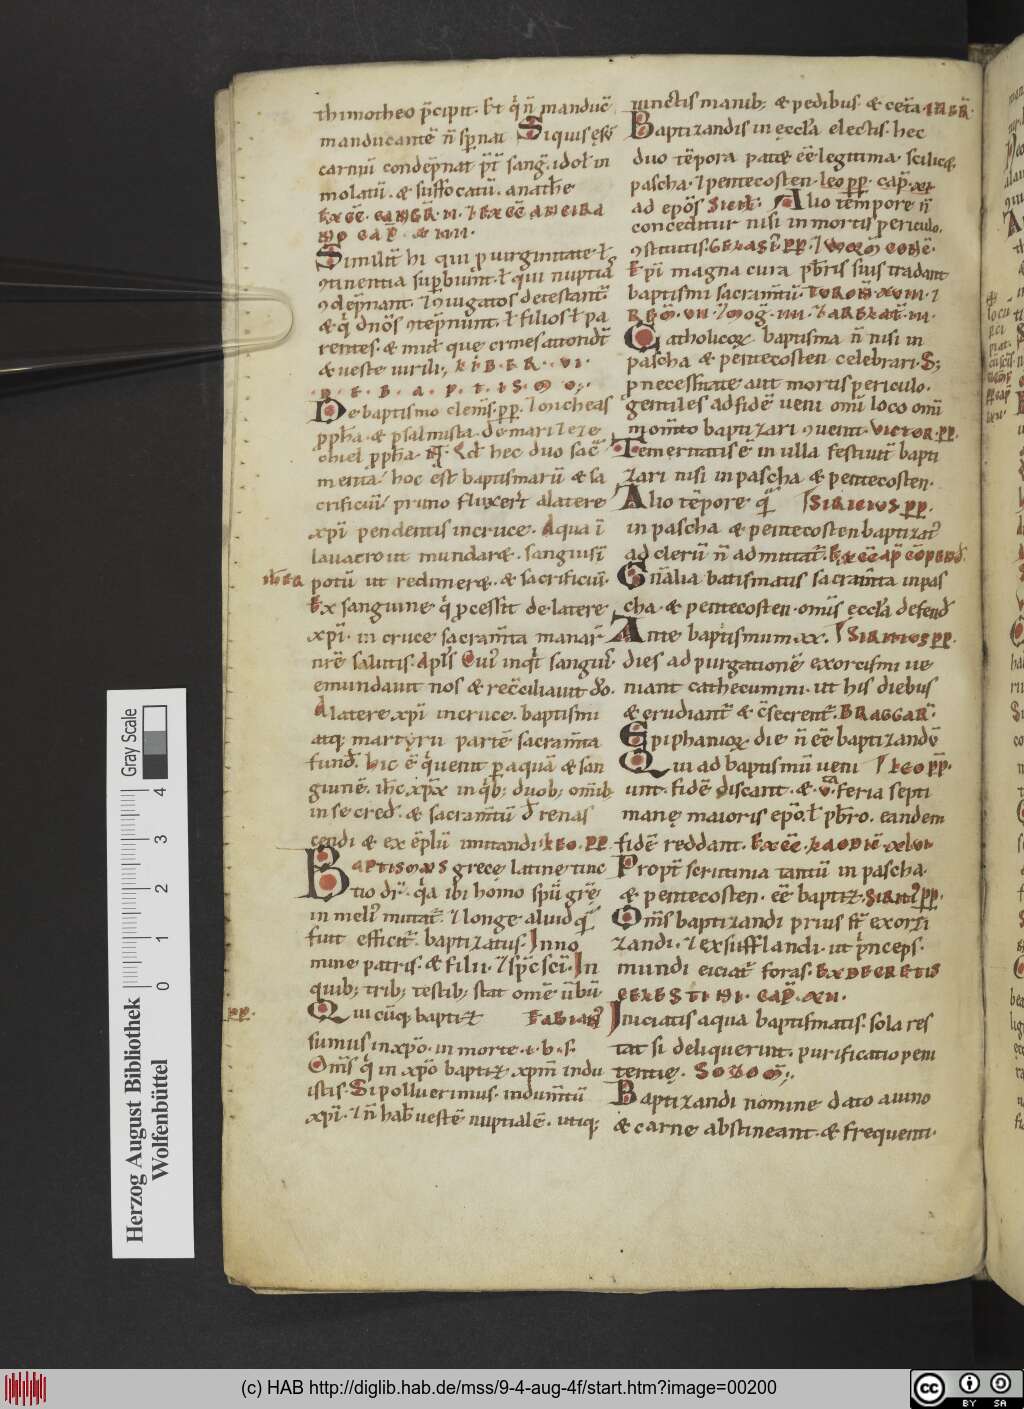 thimotheo p̄cipit. Et q̇ n̄ manduc̄
manducantē n̄ sp̄nat Siquis ęsē
carniū condēpnat p̄t sanḡ. idol̄ in
molatū. & suffocatū. anathē
Simil̄it hi qui p uirginitate. ł
ɔtinentia sup̄biunt. ł qui nuptia
ɔdēpnant. ⁊ ɔiugatos detestant̄
& q̇ dn̄os ɔtēpnunt. ł filios ł pa
rentes. & mul̄ que crines attondt̄
& ueste uirili; LIBER. VI.
D. E. B. A. P. T. I. S. M O;
De baptismo clem̄s. pp. ⁊ oncheas
pph̄a. & psalmista. de mari ⁊ eze
chiel pph̄a. hec duo sac̄
menta. hoc ēst baptismatū & sa
crificiū. primo fluxer̄t alatere
xp̄i pendentis incruce. Aqua ī
lauacro ut mundaræ. sanguis ī
potū ut redimeræ. & sacrificiū.
Ex sanguine q̇ pcessit de latere
xp̄i. in cruce sacram̄ta manar̄
nr̄ē salutis. Apl̄s Cui' inqt sanguis
emundauit nos & recc̄iliauit do.
Alatere xp̄i incruce. baptismi
atq; martyrii partē sacram̄ta
fund̄. hic ē q̇ uenit p aquā & san
guinē. ih̄c xp̄c in qb; duob; om̄ib
in se cred̄. & sacram̄tū d̄ renas
cendi & ex ēplū imitandi. LEO. PP
BAPTISMUS grece latine tinc
tio dr̄. qa ibi homo spū grē
in meli' mutat̄. ⁊ longe aliud q̄
fuit efficit̄. baptizatus. Inno
mine patris. & filii. ⁊ sp̄c sc̄i. In
quib; trib; testib; stat omē ūbū
Qui cūq; baptiz FABIAN'
PP.
sumus inxp̄o. in morte. e. b. s.
Om̄s q̇ in xp̄o baptiz xp̄m indu
istis. Si polluerimus. indum̄tū
xp̄i. ⁊ n̄ hab̄ uestē nuptialē. utiq;
iunctis manib; & pedibus. & cet̄a.
Baptizandis in ęccl̄a electis. hec
duo tēpora patte ēe legitima. scilicæ
pascha. ⁊ pentecosten. leo pp. cap̄.
ad ep̄os Alio tempore n̄
conceditur nisi in mortis periculo.
ɔstitutis. GELASI' PP.
Ep̄i magna cura pb̄ris suis tradant
baptismi sacram̄tū.
Catholicoꝝ baptisma n̄ nisi in
pascha & pentecosten celebrari. S;
p necessitate aut mortis periculo.
gentiles ad fidē ueni omī loco omī
momto baptizari ɔuenit. VICTOR. PP.
Temeritatis ē in ulla festiuit̄ bapti
zari nisi in pascha & pentecosten.
Alio tēpore q̄ SIRICIUS PP.
in pascha & pentecosten baptizat'
ad clerū n̄ admittat̄.
Gn̄alia batismatis sacram̄ta in pas
cha. & pentecosten. omīs ęccl̄a defend̄
Ante baptismum xx. SIRICIUS PP.
dies ad purgationē exorcismi ue
niant cathecumini. ut his diebus
& erudiant̄ & c̄secrent̄. BRAGGAR̄
Epiphanioꝝ die n̄ ēe baptizandē
Qui ad baptismū ueni LEO PP.
unt. fidē discant. & v. feria septi
manę maioris ep̄o. ł pb̄ro. eandem
fidē reddant.
Propt̄ scrutinia tantū in pascha
& pentecosten. ēe baptiz. SIRICI' PP.
Om̄s baptizandi prius st̄ exorzi
zandi. ⁊ exsufflandi. ut p̄nceps.
mundi eiciat̄ foras. EX DECRETIS
CELESTINI. CAP̄. XII.
Iniciatis aqua baptismatis. sola res
tat si deliquerint. purificatio peni
tentię. SOZOM';
Baptizandi nomine dato a uino
& carne abstineant. & frequenti.
Gray Scale
0 1 2 3 4
Herzog August Bibliothek
Wolfenbüttel
(c) HAB http://diglib.hab.de/mss/9-4-aug-4f/start.htm?image=00200
cc BY SA